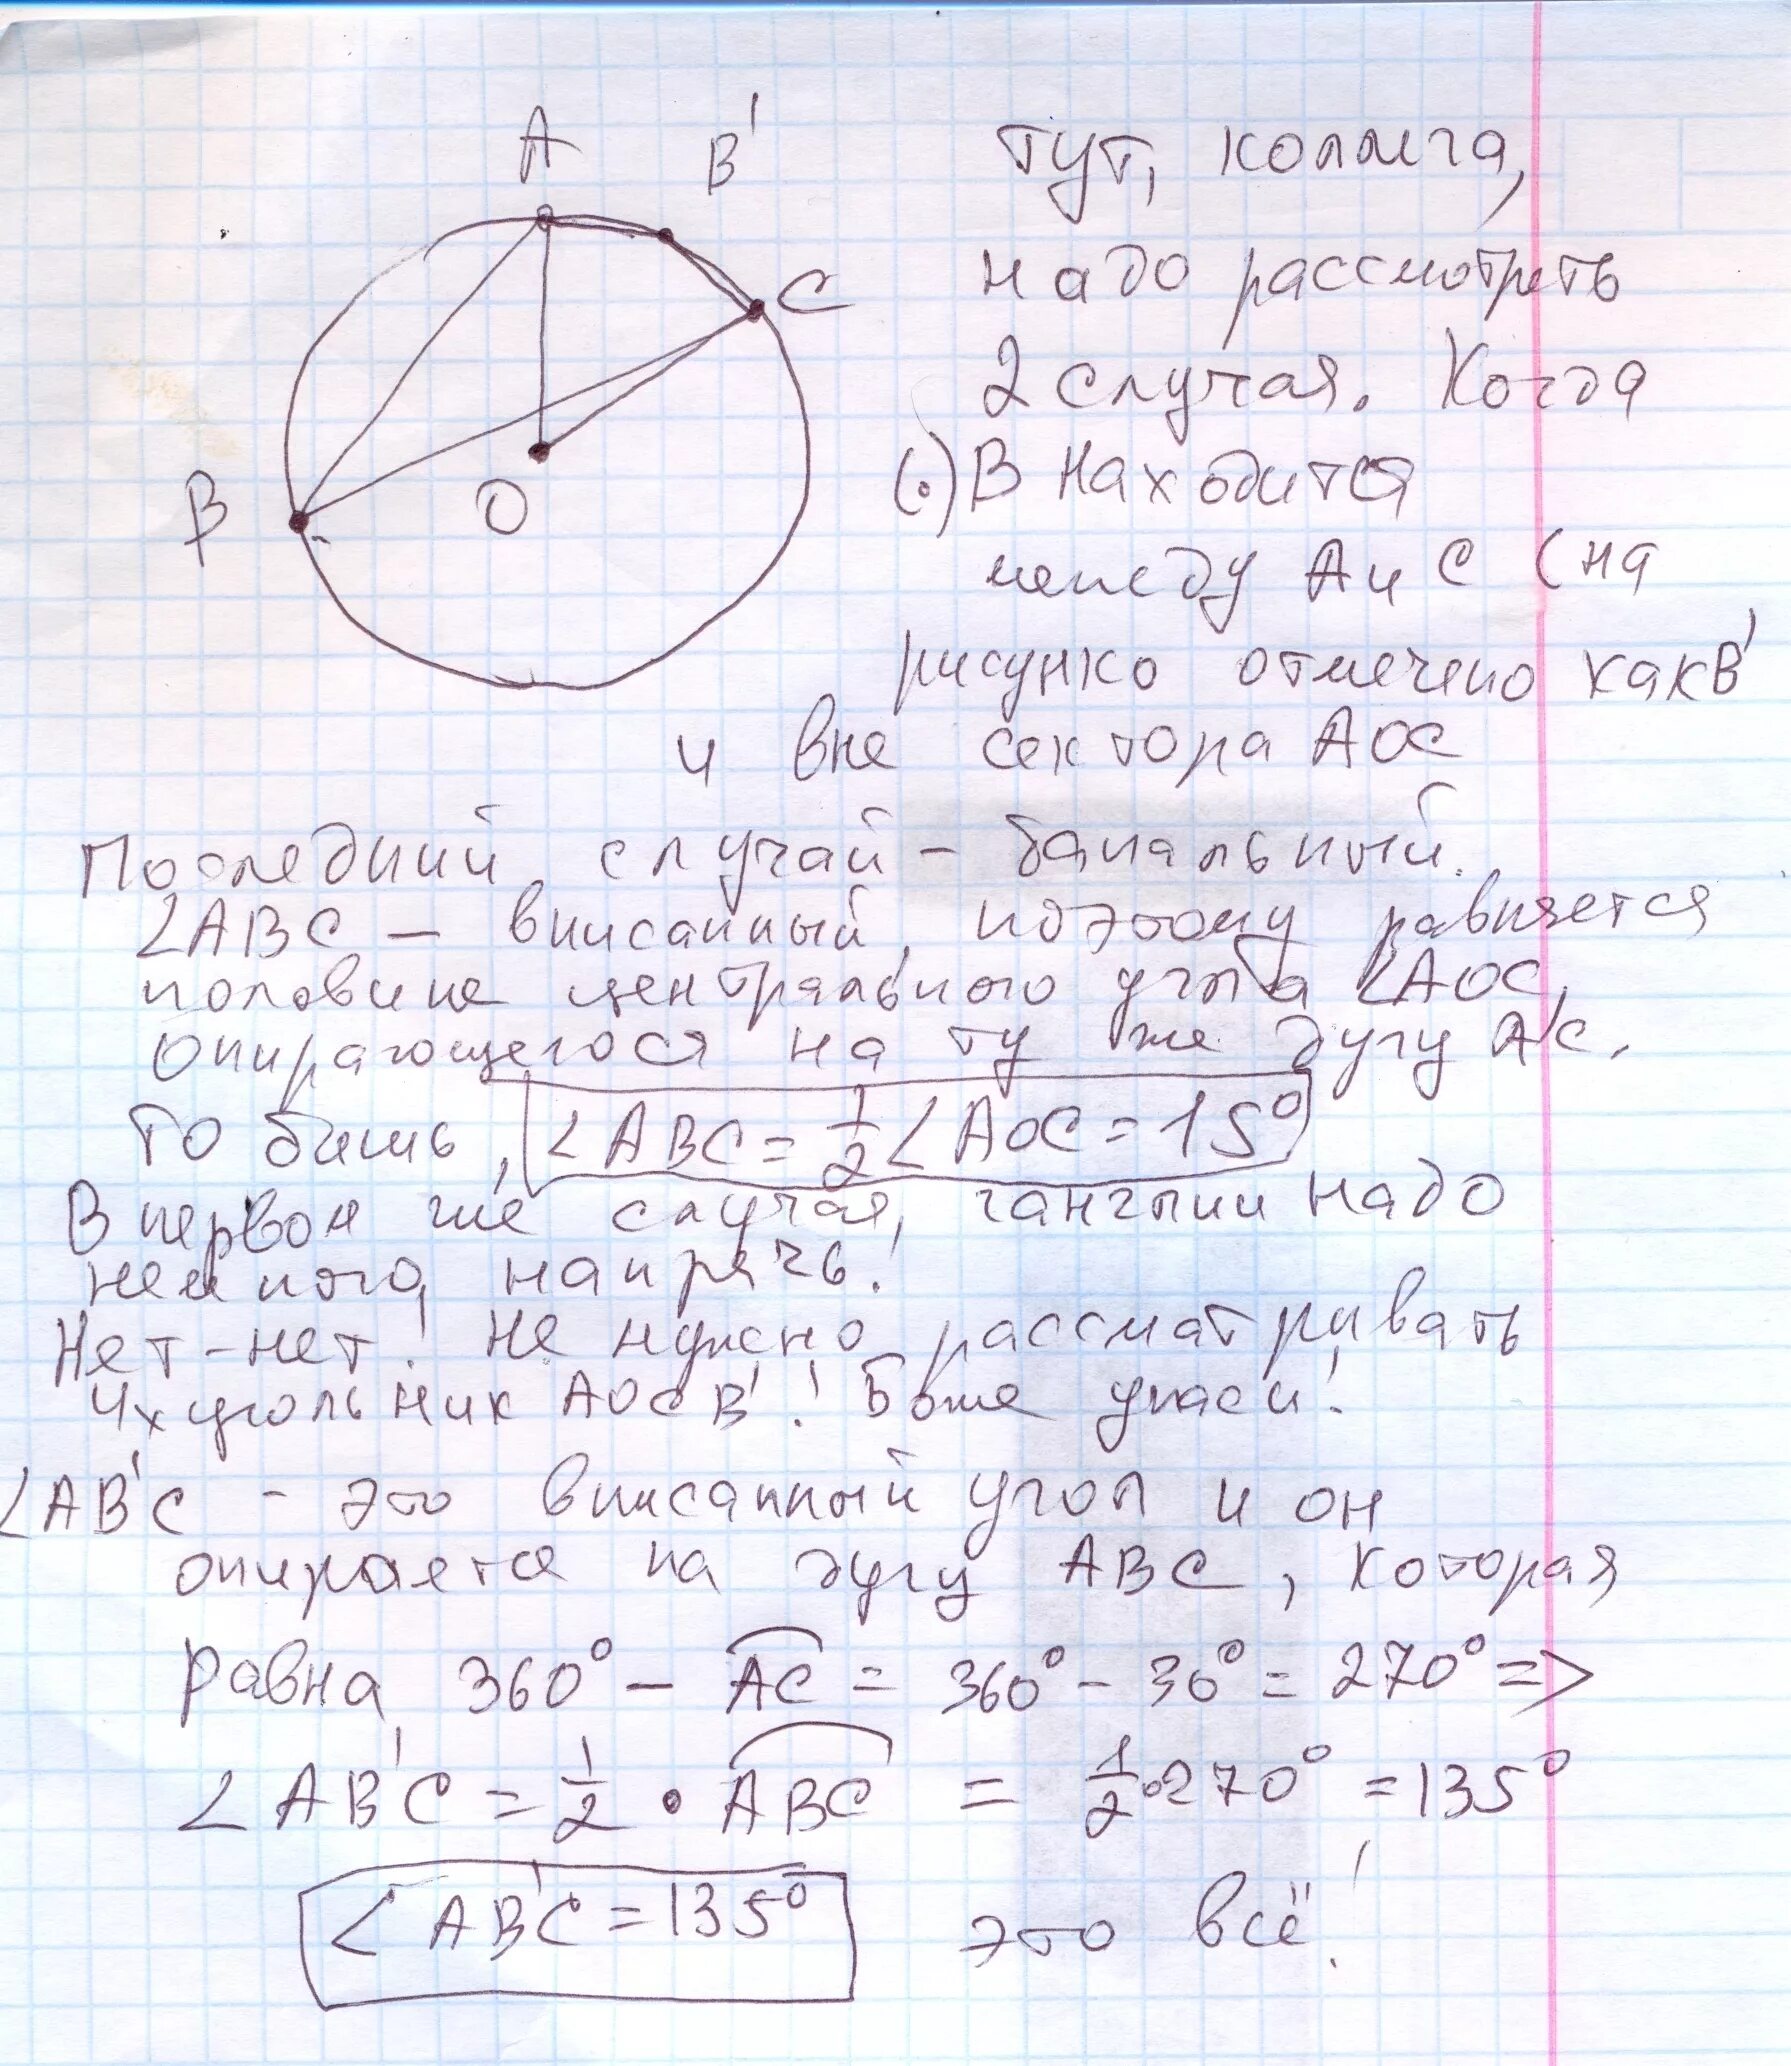 A
B'
C
B
O
Тут, коллега,
надо рассмотреть
2 случая. Когда
(.) В находится
между А и С (на
рисунке отмечено как B'
и вне сектора АОС
Последний случай – банальный.
∠ABC – вписанный, поэтому равняется
половине центрального угла ∠AOC,
опирающегося на ту же дугу AC.
То бишь, ∠ABC = 1/2 ∠AOC = 15°
В первом же случае, ганглии надо
немного напрячь!
Нет-нет! Не нужно рассматривать
4хугольник AOCB'! Боже упаси!
∠AB'C - это вписанный угол и он
опирается на дугу ABC, которая
равна 360° – AC = 360° - 30° = 270° =>
∠AB'C = 1/2 · ABC = 1/2 · 270° = 135°
∠AB'C = 135° это всё!